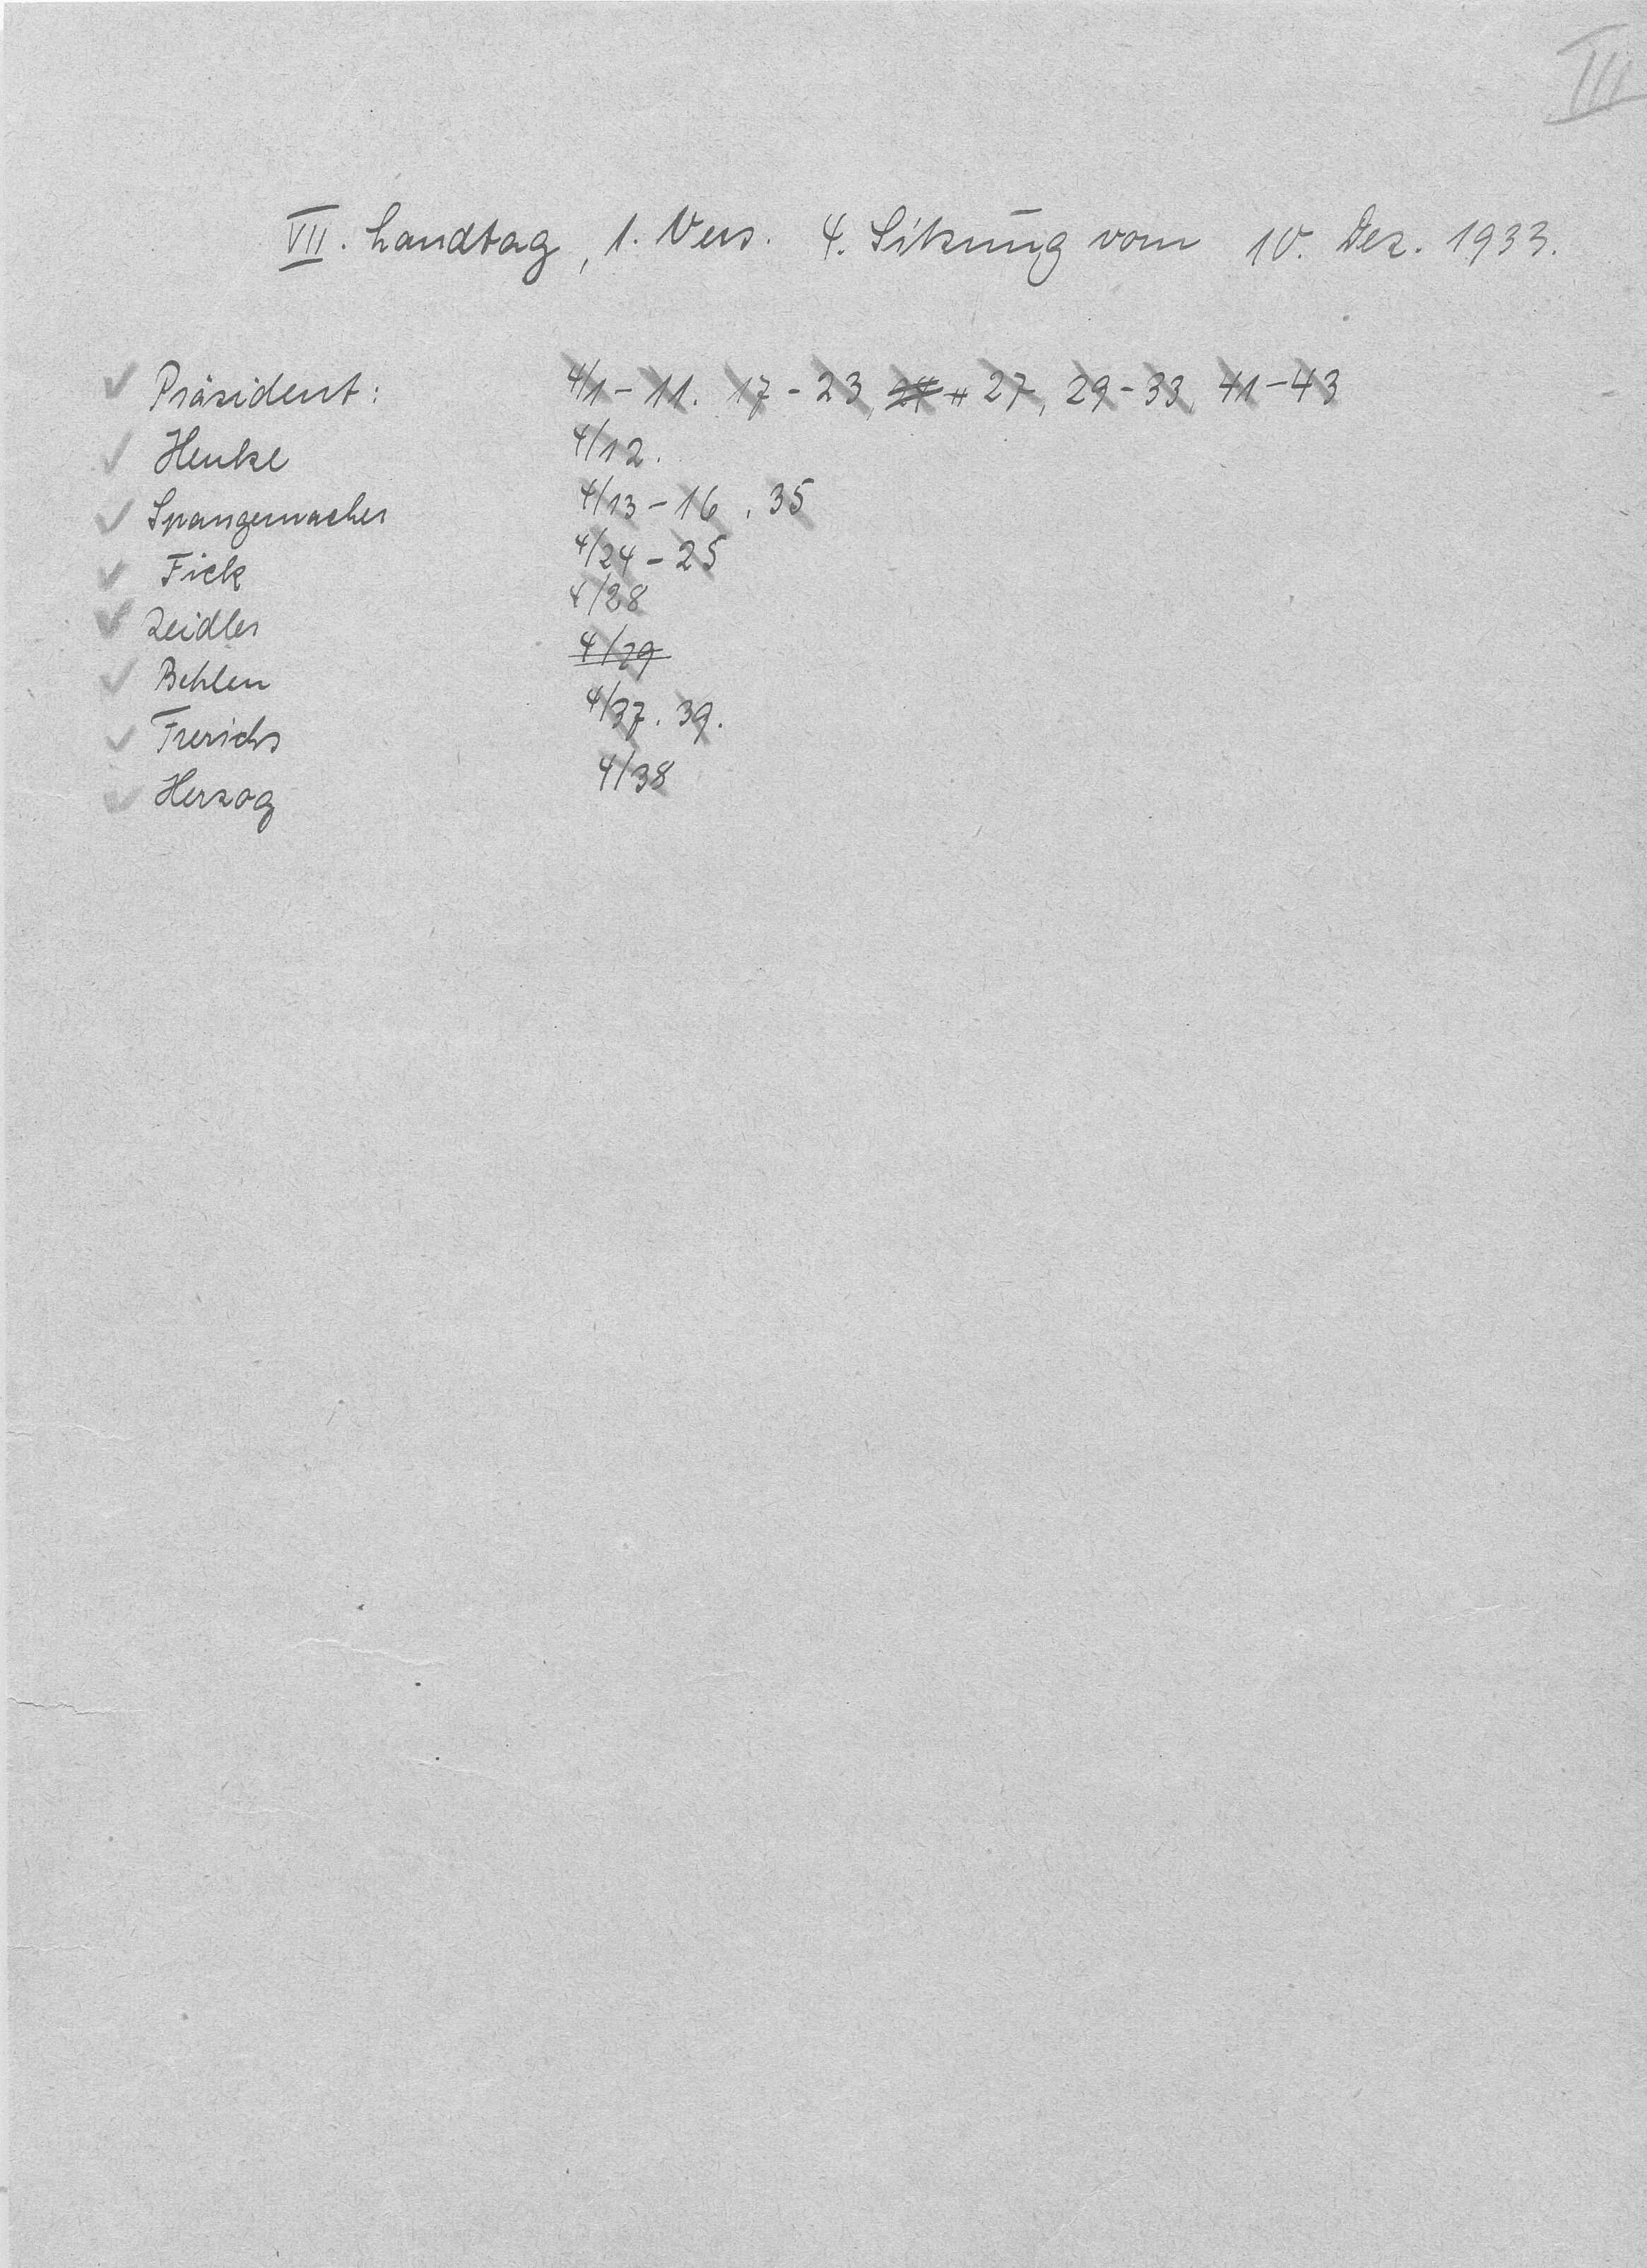 III
VII. Landtag, 1. Vers. 4. Sitzung vom 10. Dez. 1933.
Präsident: 4/1 - 11. 17 - 23, 27, 29 - 33, 41 - 43
Henke 4/12.
Spangemacher 4/13 - 16, 35
Fick 4/24 - 25
Zeidler 4/28
Behlen 4/29
Frerichs 4/37. 39.
Herzog 4/38